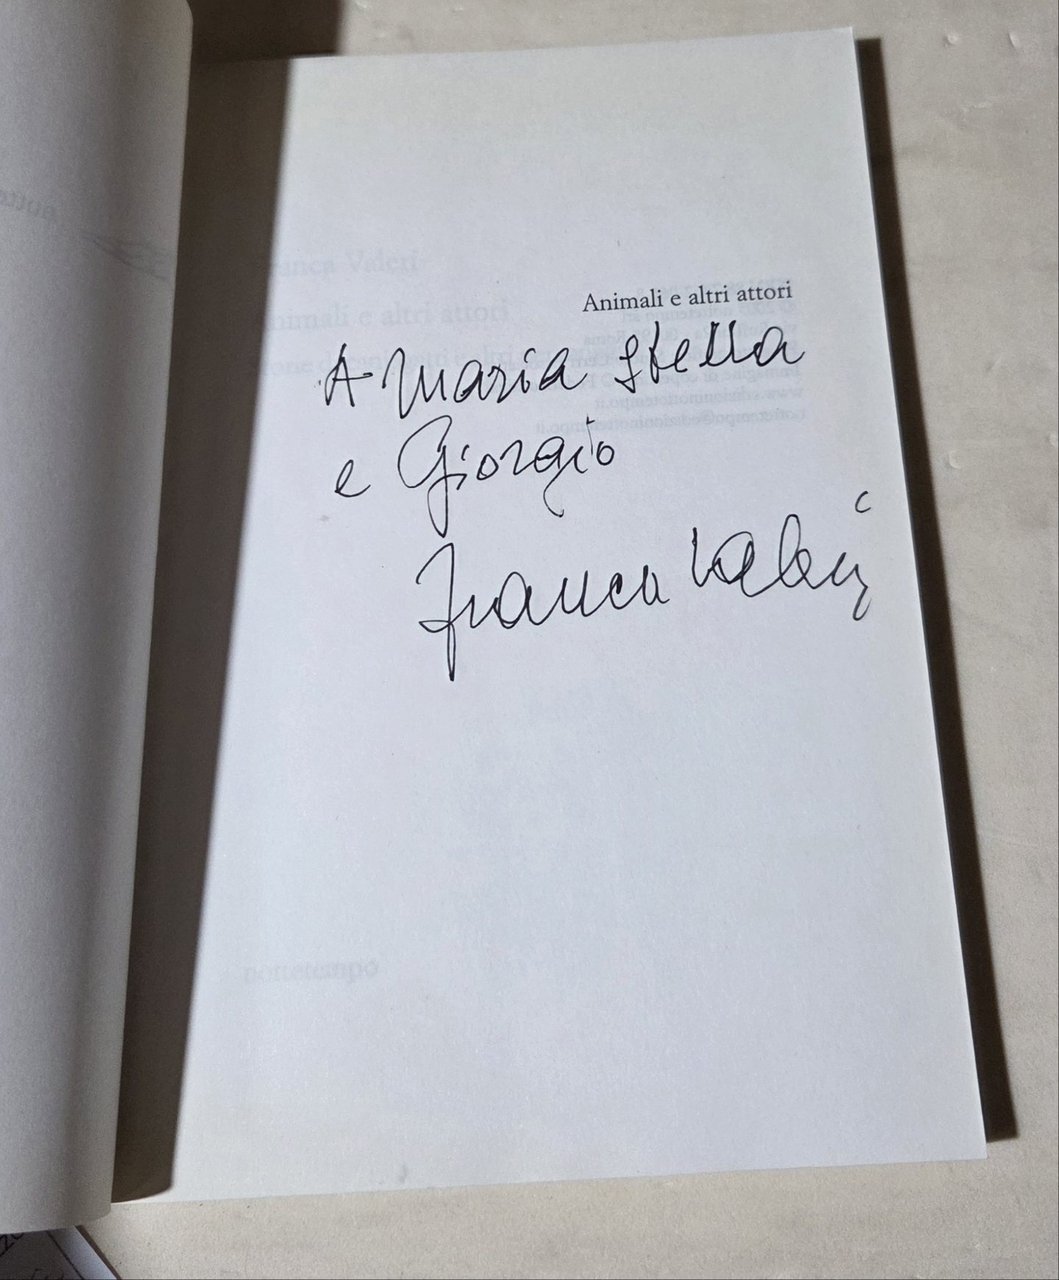 Animali e altri attori
A Maria Stella
e Giorgio
Franca Valeri
nottetempo